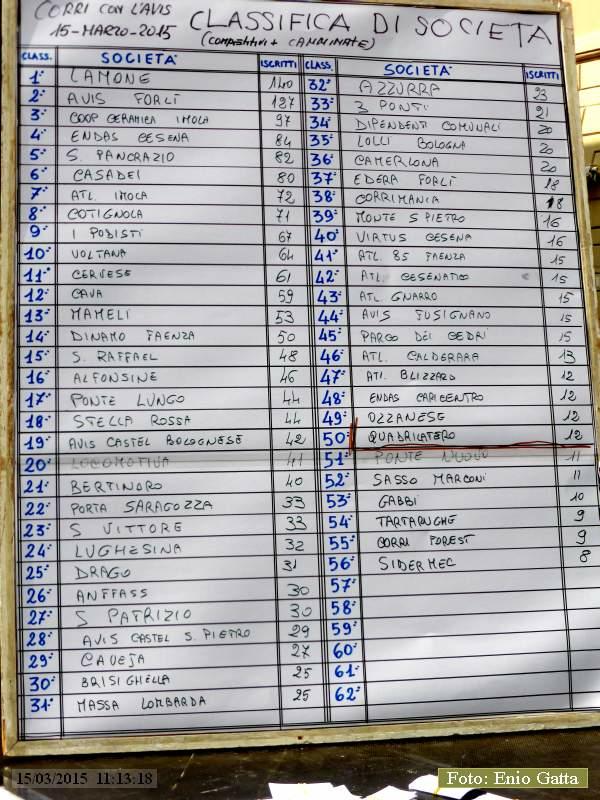 CORRI CON L'AVIS
15-MARZO-2015
CLASSIFICA DI SOCIETÀ
(COMPETITIVI + CAMMINATE)
CLASS. SOCIETA' ISCRITTI
1° LAMONE 140
2° AVIS FORLÌ 127
3° COOP CERAMICA IMOLA 97
4° ENDAS CESENA 84
5° S. PANCRAZIO 82
6° CASADEI 80
7° ATL. IMOLA 72
8° COTIGNOLA 71
9° I PODISTI 67
10° VOLTANA 64
11° CERVESE 61
12° CAVA 59
13° MAMELI 53
14° DINAMO FAENZA 50
15° S. RAFFAEL 48
16° ALFONSINE 46
17° PONTE LUNGO 44
18° STELLA ROSSA 44
19° AVIS CASTEL BOLOGNESE 42
20° LOCOMOTIVA 41
21° BERTINORO 40
22° PORTA SARAGOZZA 33
23° S VITTORE 33
24° LUGHESINA 32
25° DRAGO 31
26° ANFFASS 30
27° S PATRIZIO 30
28° AVIS CASTEL S. PIETRO 29
29° CAVEJA 27
30° BRISIGHELLA 25
31° MASSA LOMBARDA 25
CLASS. SOCIETA' ISCRITTI
32° AZZURRA 23
33° 3 PONTI 21
34° DIPENDENTI COMUNALI 20
35° LOLLI BOLOGNA 20
36° CAMERLONA 20
37° EDERA FORLÌ 18
38° CORRIMANIA 18
39° MONTE S PIETRO 16
40° VIRTUS CESENA 16
41° ATL. 85 FAENZA 15
42° ATL. CESENATICO 15
43° ATL. GNARRO 15
44° AVIS FUSIGNANO 15
45° PARCO DEI CEDRI 15
46° ATL. CALDERARA 13
47° ATL. BLIZZARD 12
48° ENDAS CARICENTRO 12
49° OZZANESE 12
50° QUADRILATERO 12
51° PONTE NUOVO 11
52° SASSO MARCONI 11
53° GABBI 10
54° TARTARUGHE 9
55° CORRI FOREST 9
56° SIDERMEC 8
57°
58°
59°
60°
61°
62°
15/03/2015 11:13:18
Foto: Enio Gatta